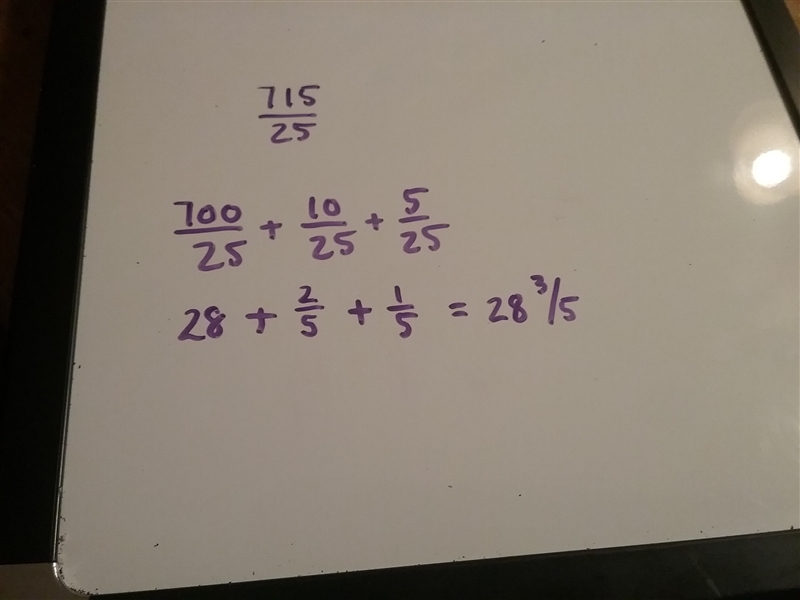 715/25
700/25 + 10/25 + 5/25
28 + 2/5 + 1/5 = 28 3/5